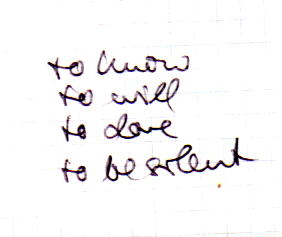 to know
to will
to dare
to be silent